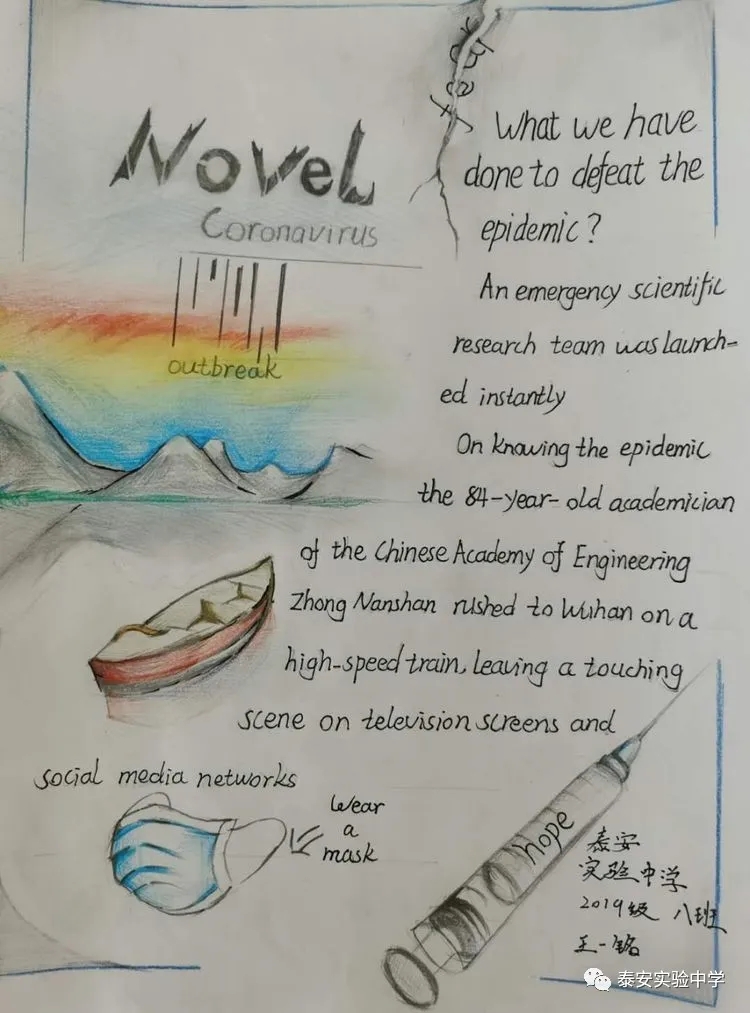 Novel
Coronavirus
outbreak
What we have
done to defeat the
epidemic?
An emergency scientific
research team was launch-
ed instantly
On knowing the epidemic
the 84-year-old academician
of the Chinese Academy of Engineering
Zhong Nanshan rushed to Wuhan on a
high-speed train, leaving a touching
scene on television screens and
social media networks
Wear
a
mask
hope
泰安
实验中学
2019级 八班
王一铭
泰安实验中学